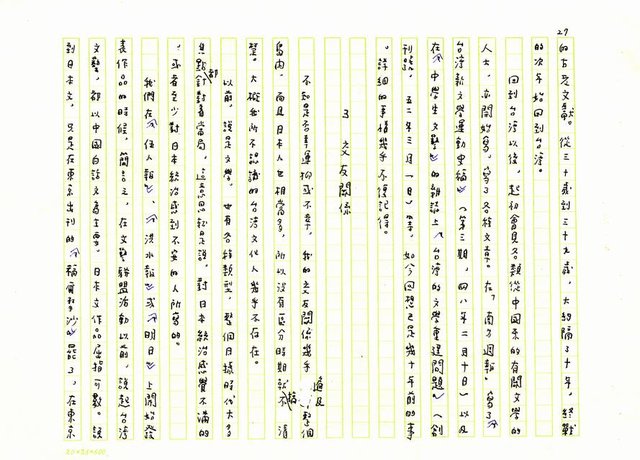 27
的古受文藝。從三十歲到三十九歲，大約隔了十年，終戰
的次年始回到台灣。
回到台灣以後，起初會見各類從中國來的有關文學的
人士，亦開始寫，寫了各種文章。在「南方週報」寫了《
台灣新文學運動史稿》（第三期，四八年二月十日）以及
在《中學生文藝》的雜誌上《台灣的文學重建問題》（創
刊號，五二年三月一日）等，如今回想已是幾十年前的事
，詳細的事情幾乎不復記得。
3 交友關係
不知是否幸運抑或不幸，我的交友關係幾乎遍及整個
島內，而且日本人也相當多，所以沒有區分時期就不搞清
楚。大概我所不認識的台灣文化人幾乎不存在。
以前，說是文學，也有各種類型，整個日據時代大多
是點都針對著當局，這意思就是說，對日本統治感覺不滿的
，或者至少對日本統治感到不安的人所寫的。
我們在《伍人報》、《洪水報》或《明日》上開始發
表作品的時候，簡言之，在文藝聯盟活動以前，說起台灣
文藝，都以中國白話文為主要，日本文作品屈指可數。談
到日本文，只是在東京出刊的《福爾摩沙》罷了，在東京